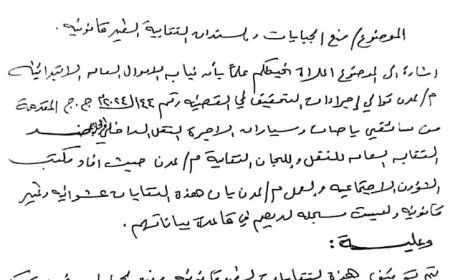 الموضوع/ منع الجبايات والسندات النقابية الغير قانونية.
اشارة الى الموضوع اعلاه نحيطكم علماً بأن نيابة الاموال العامه الابتدائية
م/عدن تتولى إجراءات التحقيق في القضيه رقم ١٤٢ لـ٢٠٢٤ ج.ج المقدمة
من سائقي باصات وسيارات الاجرة النقل الداخلي ضد
النقابه العامه للنقل واللجان النقابية م/عدن حيث افاد مكتب
الشؤون الاجتماعيه والعمل م/عدن بان هذه النقابات عشوائيه وغير
قانونيه وليست مسجله لديهم في قاعدة بياناتهم.
وعليــة:
هذه النقابات